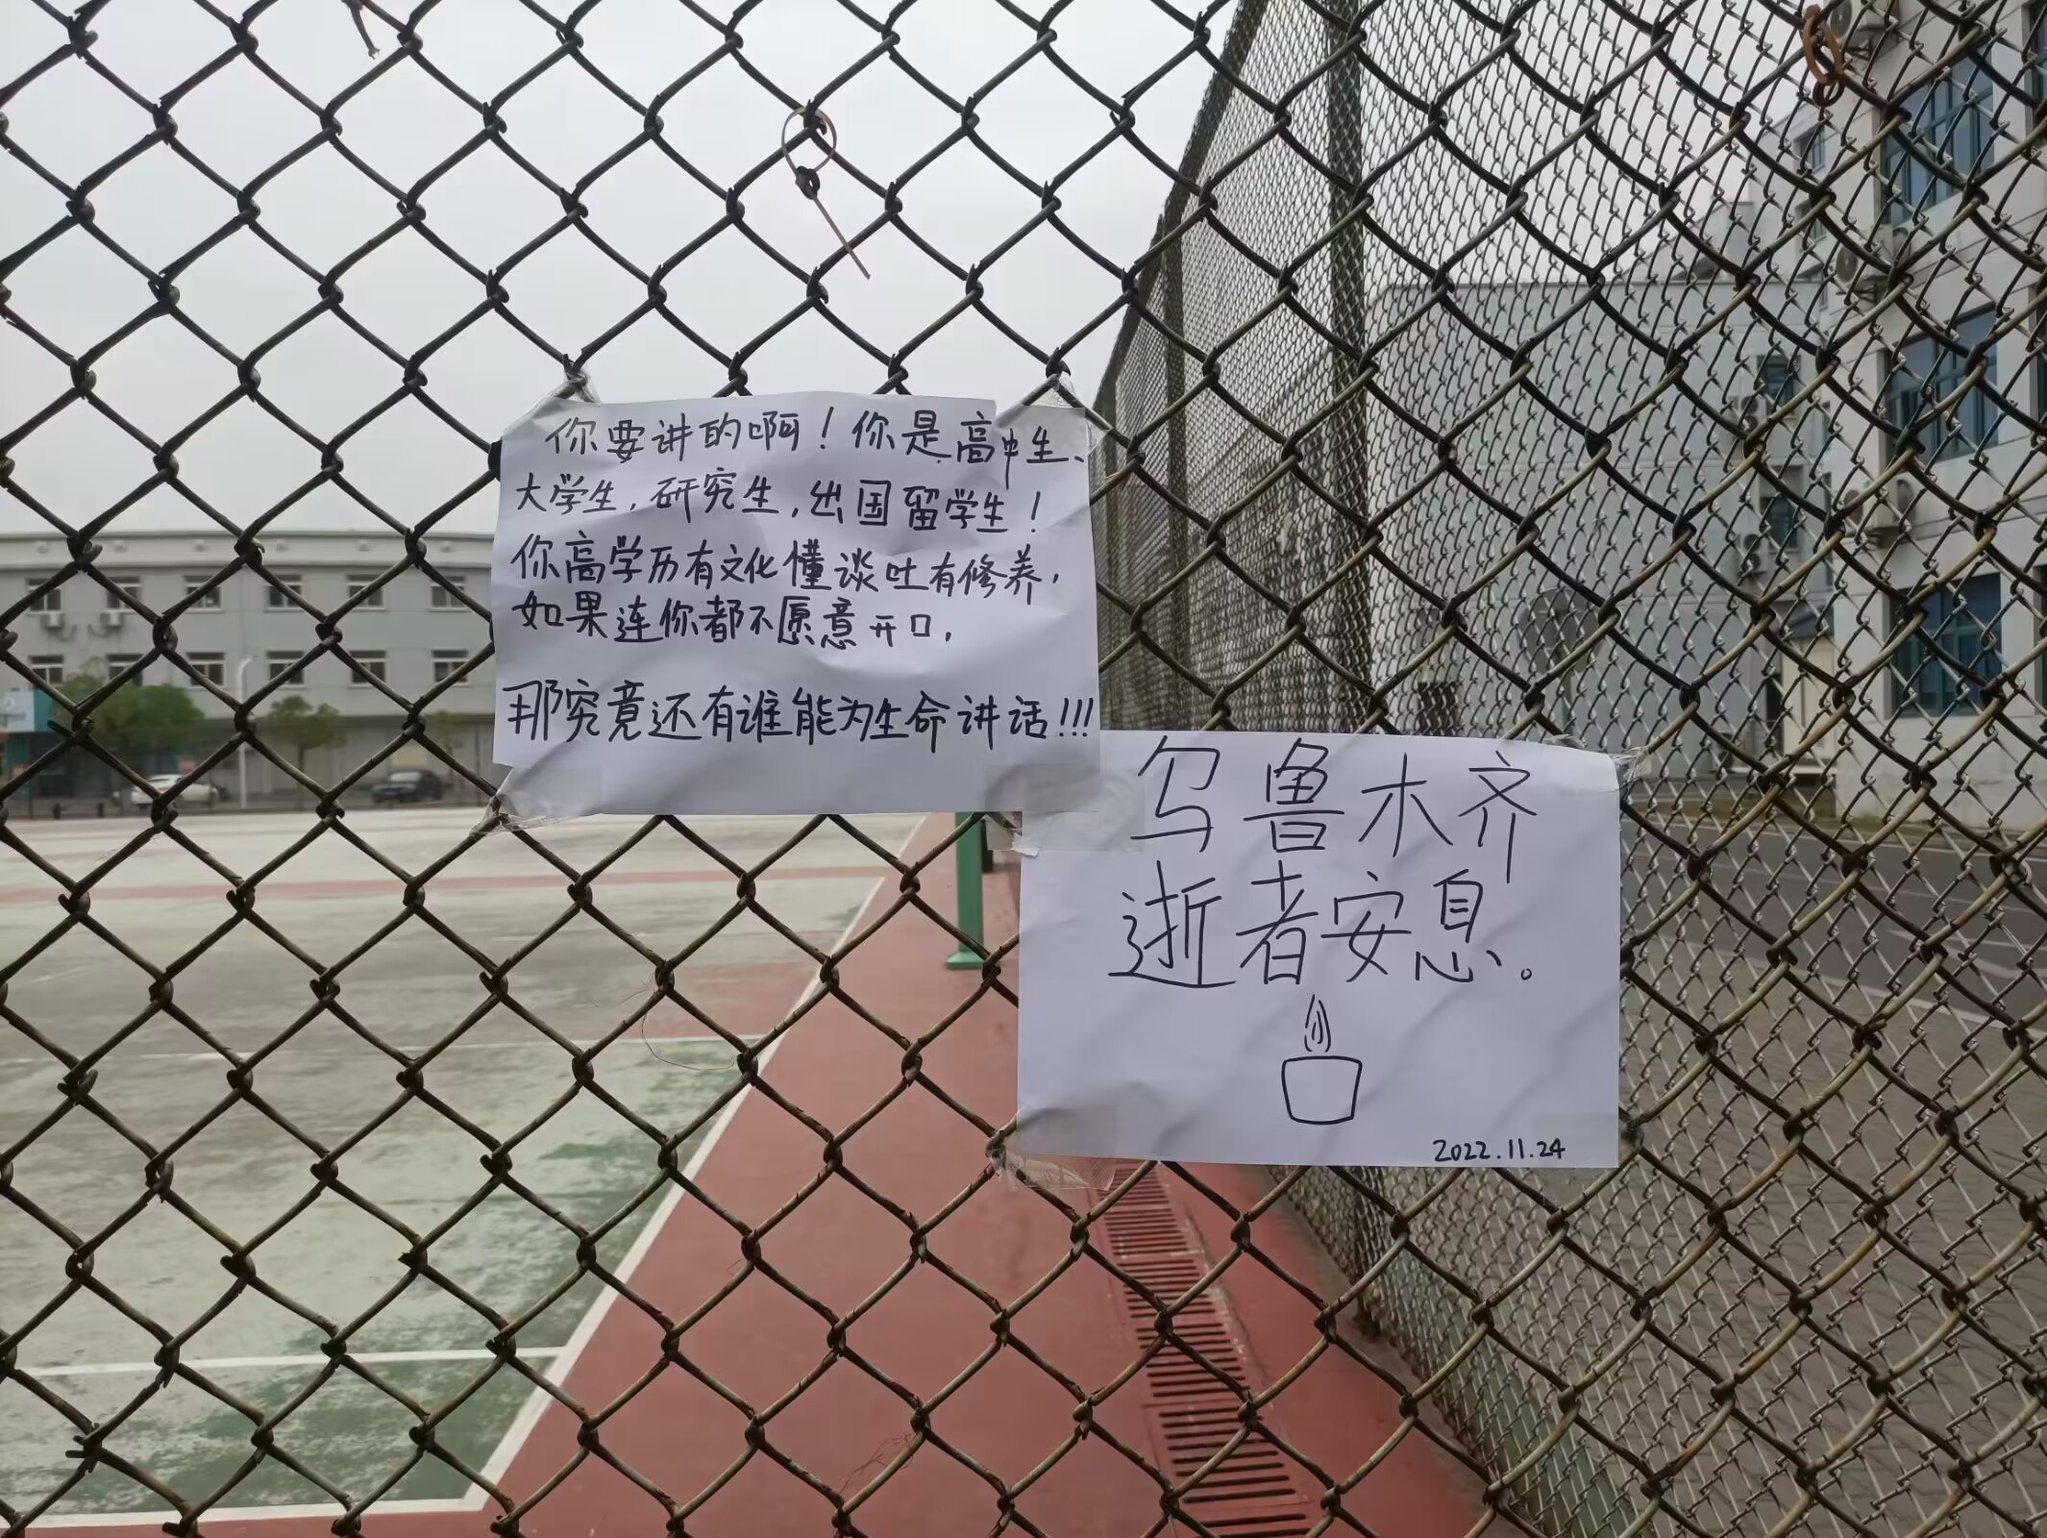 你要讲的啊！你是高中生、
大学生，研究生，出国留学生！
你高学历有文化懂谈吐有修养，
如果连你都不愿意开口，
那究竟还有谁能为生命讲话!!!
乌鲁木齐
逝者安息。
2022.11.24